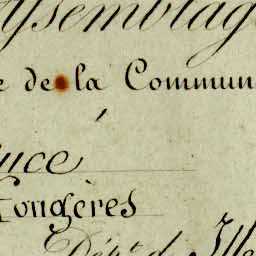 ssemblag
e de la Commun
uce
Fougères
Dépt. d' Ille